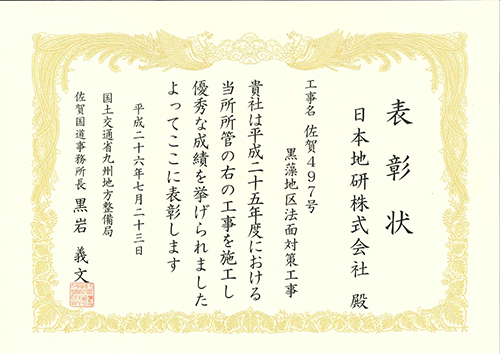 表彰状
日本地研株式会社 殿
工事名 佐賀497号
黒藻地区法面対策工事
貴社は平成二十五年度における
当所所管の右の工事を施工し
優秀な成績を挙げられました
よってここに表彰します
平成二十六年七月二十三日
国土交通省九州地方整備局
佐賀国道事務所長 黒岩 義文